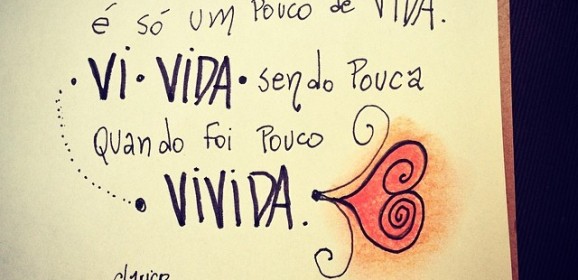 é só um pouco de VIDA.
• Vi • VIDA • sendo Pouca
Quando foi Pouco
• ViViDA.